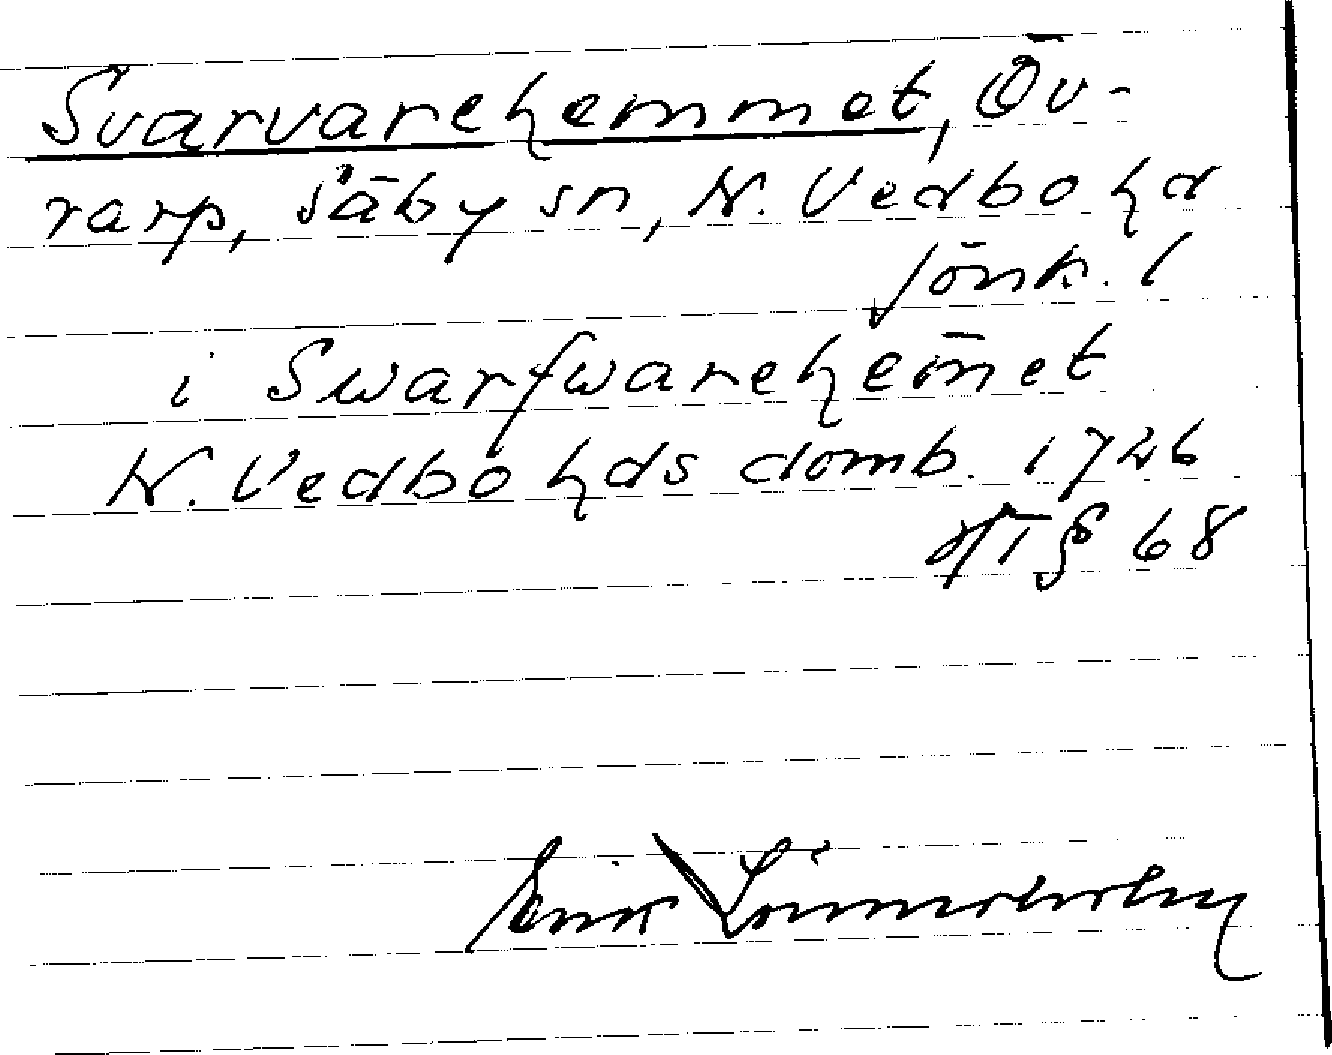 Svarvarehemmet, Öv-
rarp, Säby sn, N. Vedbo hd
Jönk. l
i Swarfwarehem̄et
N. Vedbo hds domb. 1726
HT § 68
Erik Lönnerholm